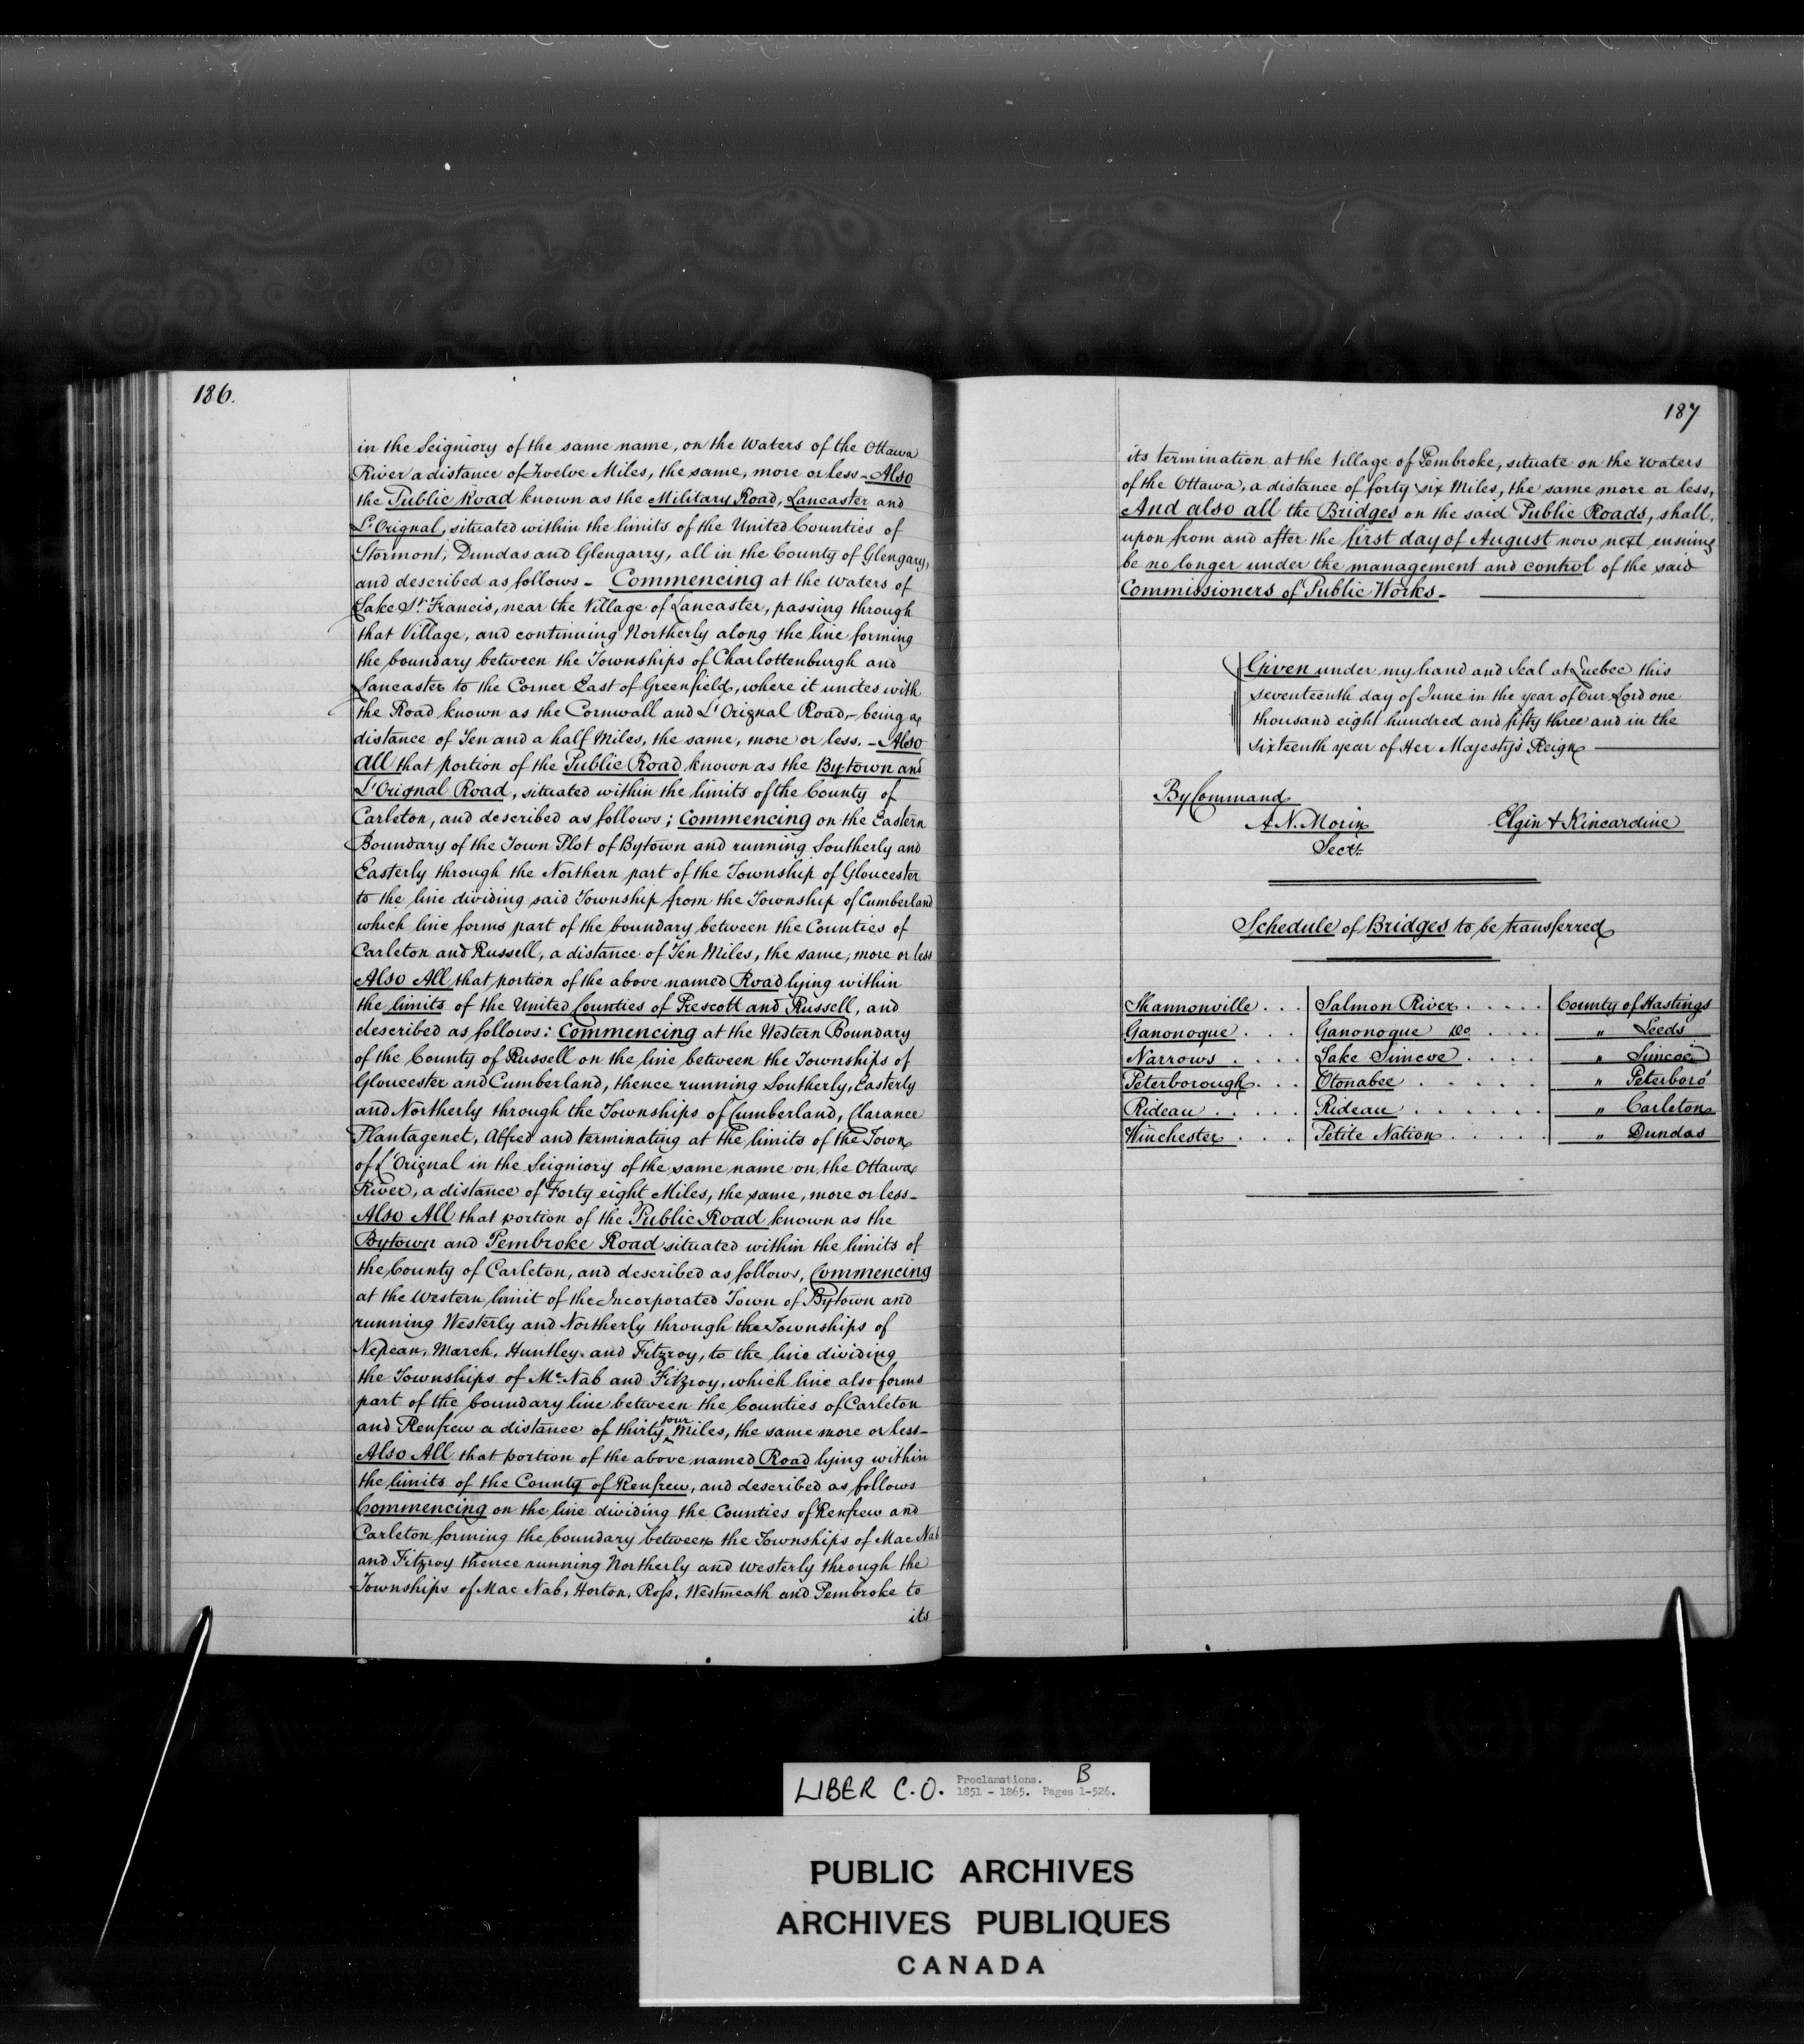 186.
in the Seigniory of the same name, on the Waters of the Ottawa
River a distance of Twelve Miles, the same, more or less - Also
the Public Road known as the Military Road, Lancaster and
L'Orignal, situated within the limits of the United Counties of
Stormont, Dundas and Glengarry, all in the County of Glengary,
and described as follows - Commencing at the Waters of
Lake St. Francis, near the Village of Lancaster, passing through
that Village, and continuing Northerly along the line forming
the boundary between the Townships of Charlottenburgh and
Lancaster to the Corner East of Greenfield, where it unites with
the Road known as the Cornwall and L'Orignal Road, - being a
distance of Ten and a half Miles, the same, more or less. - Also
all that portion of the Public Road known as the Bytown and
L'Orignal Road, situated within the limits of the County of
Carleton, and described as follows; Commencing on the Eastern
Boundary of the Town Plot of Bytown and running Southerly and
Easterly through the Northern part of the Township of Gloucester
to the line dividing said Township from the Township of Cumberland
which line forms part of the boundary between the Counties of
Carleton and Russell, a distance of Ten Miles, the same, more or less
Also All that portion of the above named Road lying within
the limits of the United Counties of Prescott and Russell, and
described as follows: Commencing at the Western Boundary
of the County of Russell on the line between the Townships of
Gloucester and Cumberland, thence running Southerly, Easterly
and Northerly through the Townships of Cumberland, Clarance
Plantagenet, Alfred and terminating at the limits of the Town
of L'Orignal in the Seigniory of the same name on the Ottawa
River, a distance of Forty eight Miles, the same, more or less -
Also All that portion of the Public Road known as the
Bytown and Pembroke Road situated within the limits of
the County of Carleton, and described as follows, Commencing
at the Western limit of the Incorporated Town of Bytown and
running Westerly and Northerly through the Townships of
Nepean, March, Huntley and Fitzroy, to the line dividing
the Townships of Mc Nab and Fitzroy, which line also forms
part of the boundary line between the Counties of Carleton
and Renfrew a distance of thirty four Miles, the same more or less -
Also All that portion of the above named Road lying within
the limits of the County of Renfrew, and described as follows
Commencing on the line dividing the Counties of Renfrew and
Carleton forming the boundary between the Townships of Mac Nab
and Fitzroy thence running Northerly and Westerly through the
Townships of Mac Nab, Horton, Ross, Westmeath and Pembroke to
its
187
its termination at the Village of Pembroke, situate on the waters
of the Ottawa, a distance of forty six Miles, the same more or less,
And also all the Bridges on the said Public Roads, shall,
upon from and after the first day of August now next ensuing
be no longer under the management and control of the said
Commissioners of Public Works.
Given under my hand and Seal at Quebec this
seventeenth day of June in the year of Our Lord one
thousand eight hundred and fifty three and in the
sixteenth year of Her Majesty's Reign
By Command
A. N. Morin Elgin & Kincardine
Secy.
Schedule of Bridges to be transferred
Shannonville . . . Salmon River . . . . . County of Hastings
Ganonoque . . . Ganonoque Do . . . . " Leeds
Narrows . . . . Lake Simcoe . . . . " Simcoe
Peterborough . . . Otonabee . . . . . . " Peterboro'
Rideau . . . . . Rideau . . . . . . " Carleton
Winchester . . . Petite Nation . . . . . " Dundas
LIBER C.O. Proclamations. B
1851 - 1865. Pages 1-526.
PUBLIC ARCHIVES
ARCHIVES PUBLIQUES
CANADA